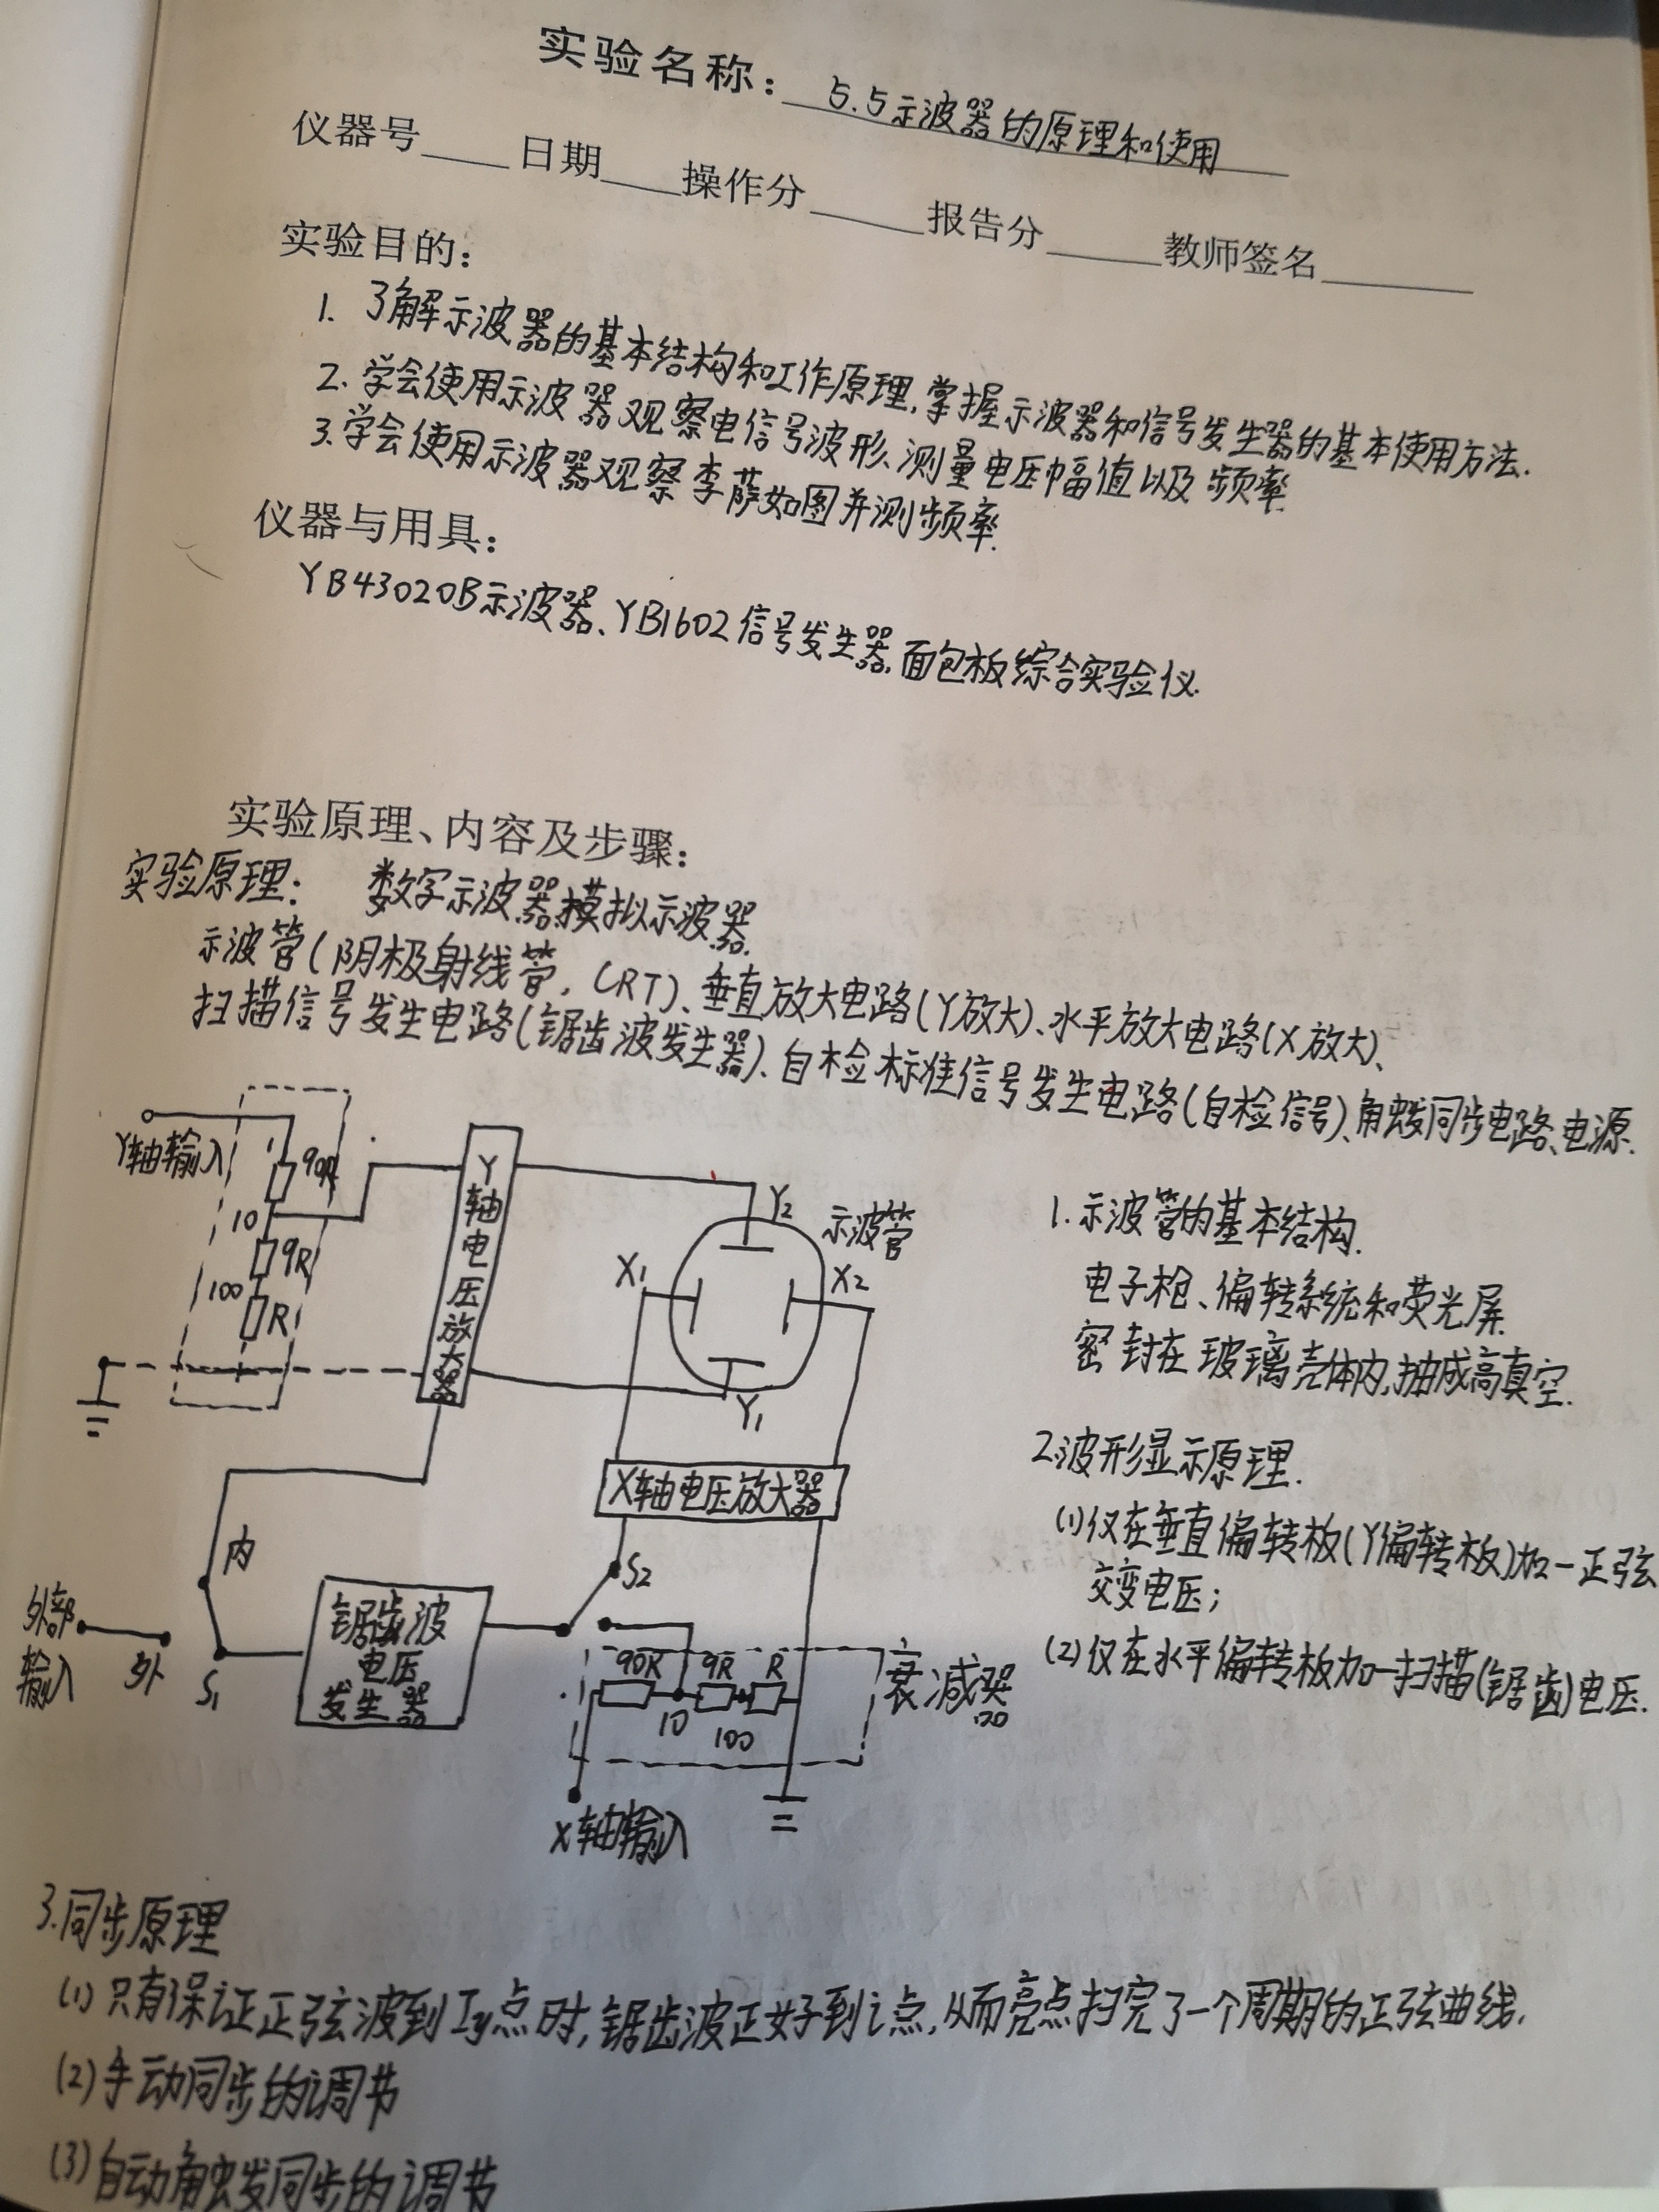 实验名称：5.5示波器的原理和使用
仪器号____日期____操作分____报告分____教师签名____
实验目的：
1. 了解示波器的基本结构和工作原理,掌握示波器和信号发生器的基本使用方法.
2. 学会使用示波器观察电信号波形、测量电压幅值以及频率.
3. 学会使用示波器观察李萨如图并测频率.
仪器与用具：
YB43020B示波器、YB1602信号发生器、面包板综合实验仪.
实验原理、内容及步骤：
实验原理： 数字示波器、模拟示波器.
示波管(阴极射线管, CRT)、垂直放大电路(Y放大)、水平放大电路(X放大)、
扫描信号发生电路(锯齿波发生器)、自检标准信号发生电路(自检信号)、触发同步电路、电源.
Y轴输入
1
90R
10
9R
100
R
Y轴电压放大器
Y2
示波管
X1
X2
Y1
X轴电压放大器
内
S2
外部输入
外
S1
锯齿波
电压
发生器
90R
9R
R
10
100
衰减器
X轴输入
1. 示波管的基本结构.
电子枪、偏转系统和荧光屏
密封在玻璃壳体内,抽成高真空.
2.波形显示原理.
(1)仅在垂直偏转板(Y偏转板)加一正弦
交变电压;
(2)仅在水平偏转板加一扫描(锯齿)电压.
3.同步原理
(1)只有保证正弦波到Iy点时,锯齿波正好到i点,从而亮点扫完了一个周期的正弦曲线.
(2)手动同步的调节
(3)自动触发同步的调节